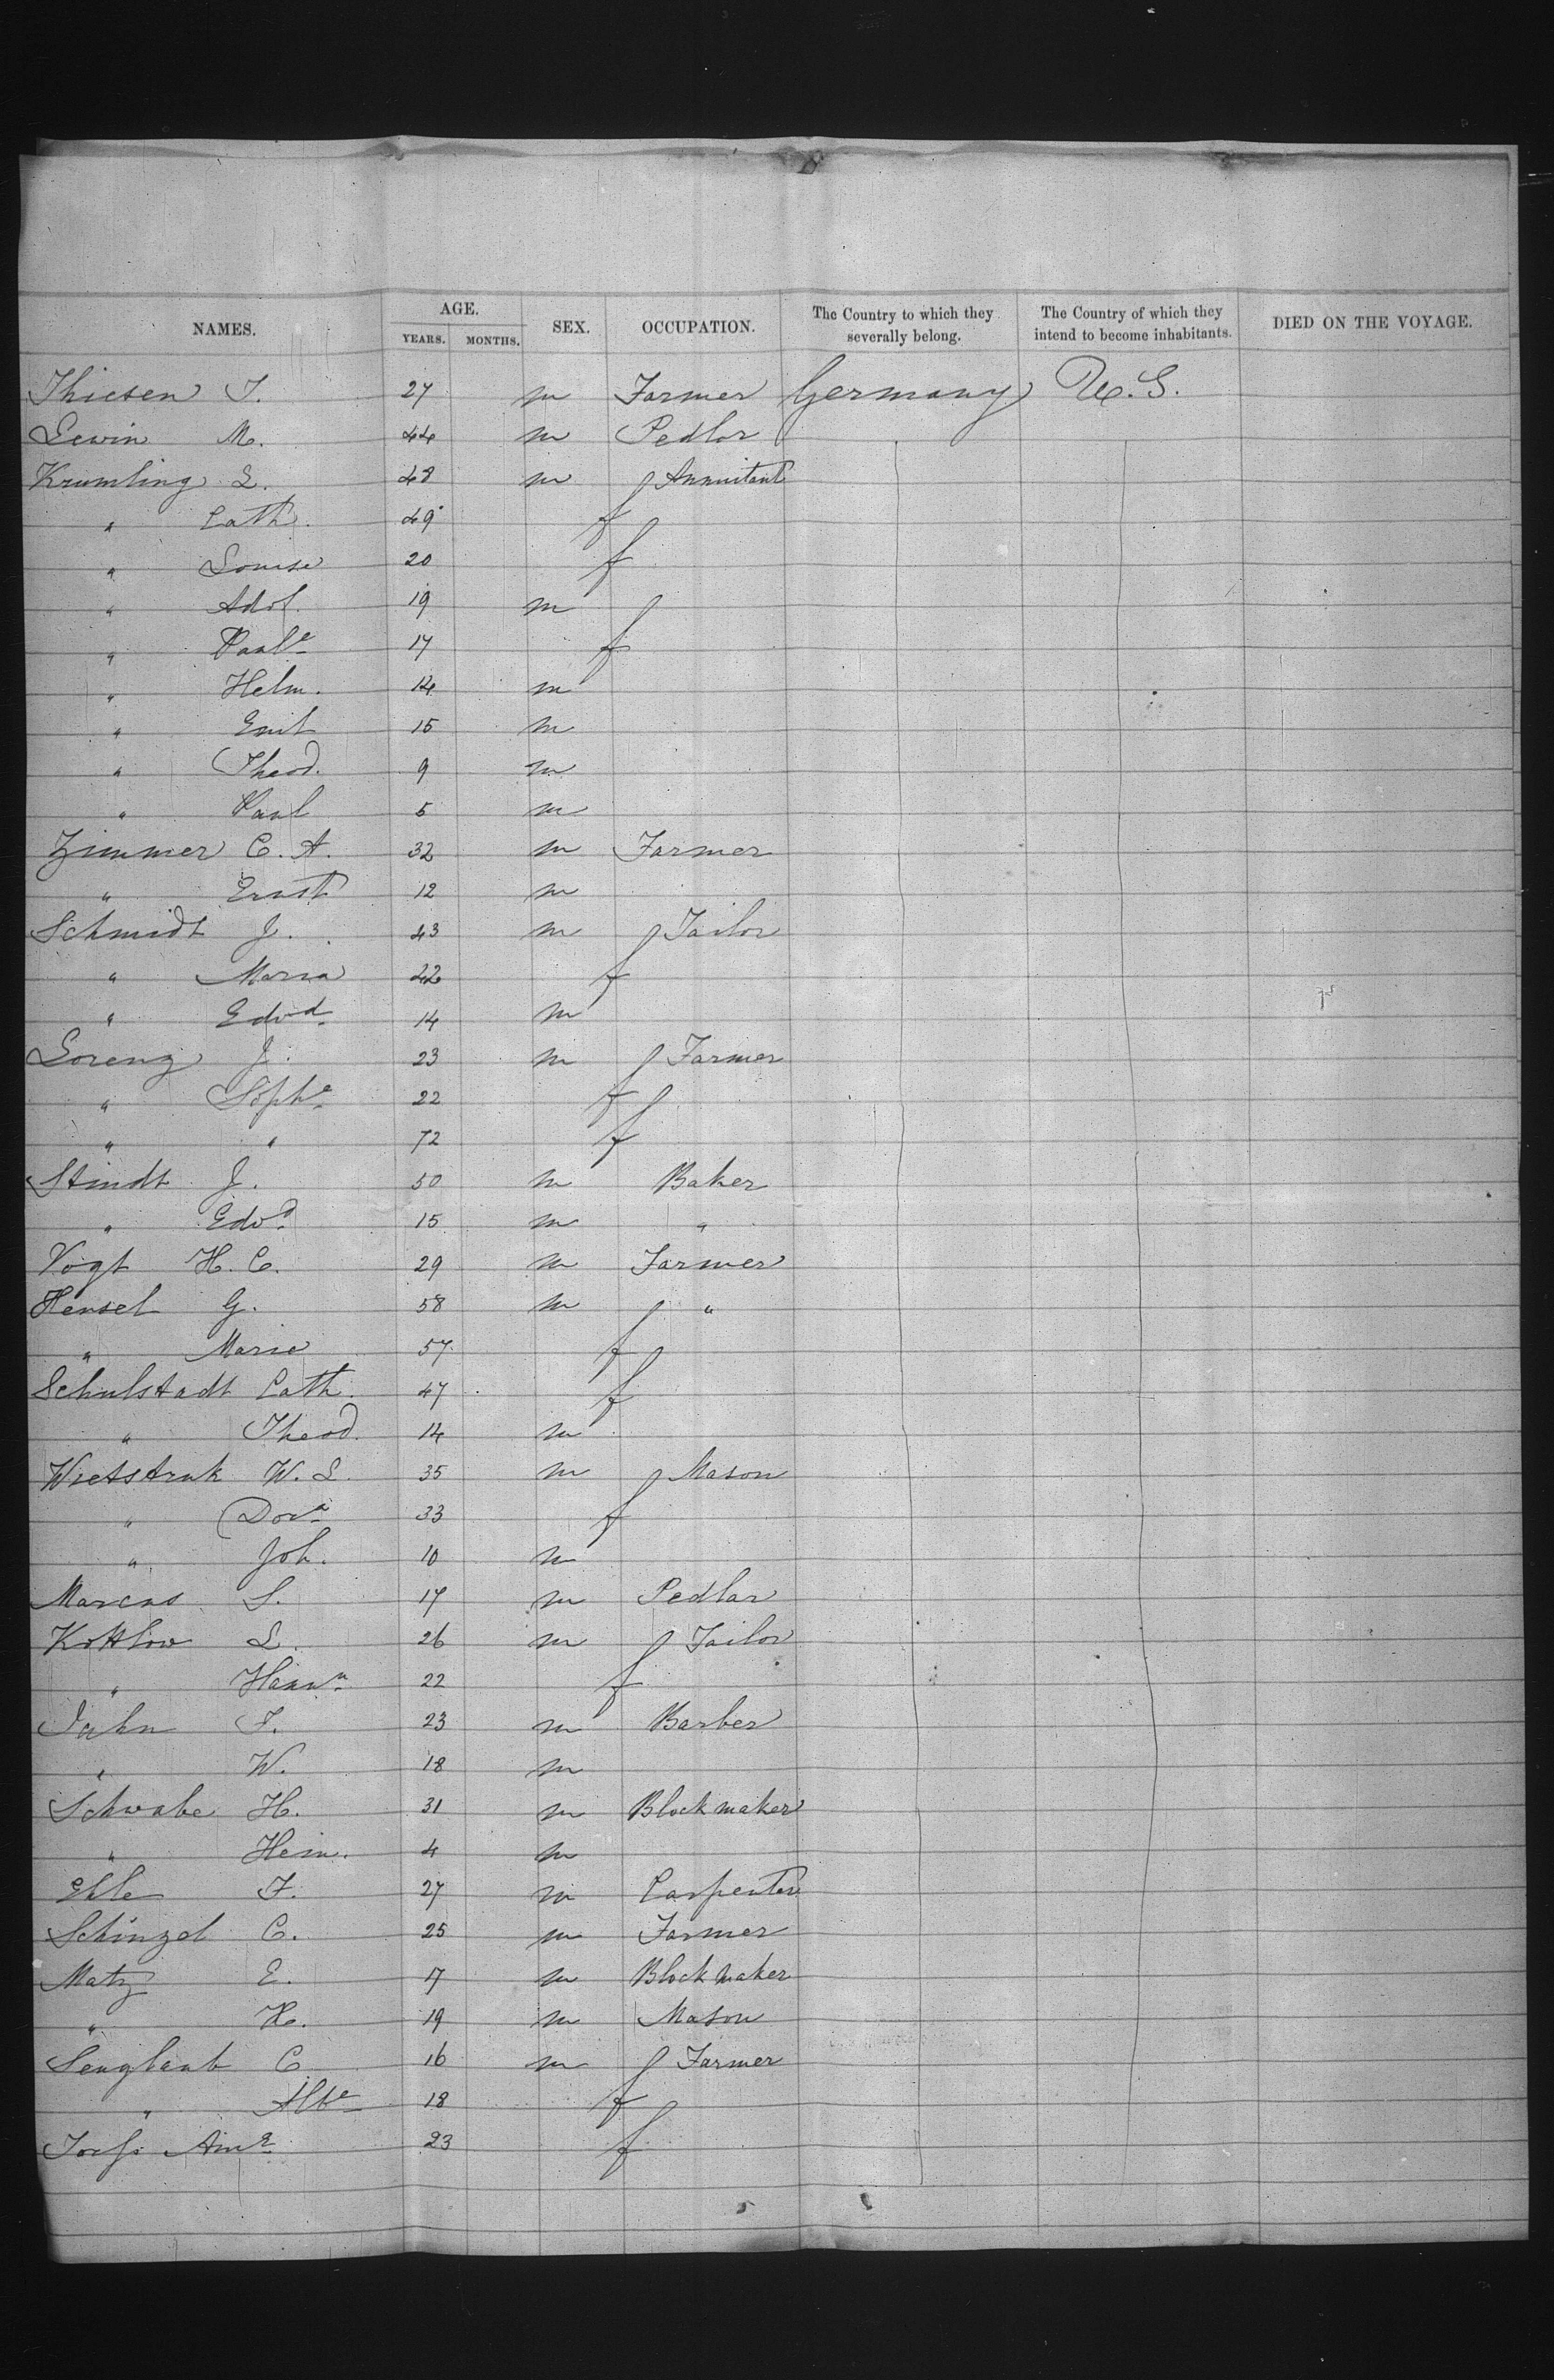 NAMES. AGE. YEARS. MONTHS. SEX. OCCUPATION. The Country to which they severally belong. The Country of which they intend to become inhabitants. DIED ON THE VOYAGE.
Thiesen J. 27 m Farmer Germany U.S.
Lewin M. 44 m Pedlar
Krumling L. 48 m Annuitant
" Cath. 49 f
" Louise 20 f
" Adol. 19 m
" Paule 17 f
" Helm. 14 m
" Emil 15 m
" Theod. 9 m
" Paul 5 m
Zimmer C. A. 32 m Farmer
" Ernst 12 m
Schmidt J. 43 m Tailor
" Maria 42 f
" Edvd 14 m
Lorenz J. 23 m Farmer
" Sophe 22 f
" " 72 f
Stindt J. 50 m Baker
" Edvd 15 m "
Vogt H. C. 29 m Farmer
Hensel G. 58 m "
" Marie 57 f
Schulstadt Cath. 47 f
" Theod. 14 m
Wietstruk W. L. 35 m Mason
" Dora 33 f
" Joh. 10 m
Marcus S. 17 m Pedlar
Kottlow L. 26 m Tailor
" Hanna 22 f
Jahn F. 23 m Barber
" W. 18 m
Schwabe H. 31 m Blockmaker
" Hein. 4 m
Ehle F. 27 m Carpenter
Schinzel C. 25 m Farmer
Matz E. 17 m Blockmaker
" H. 19 m Mason
Senglaub C. 16 m Farmer
" Albe 18 f
Ame 23 f